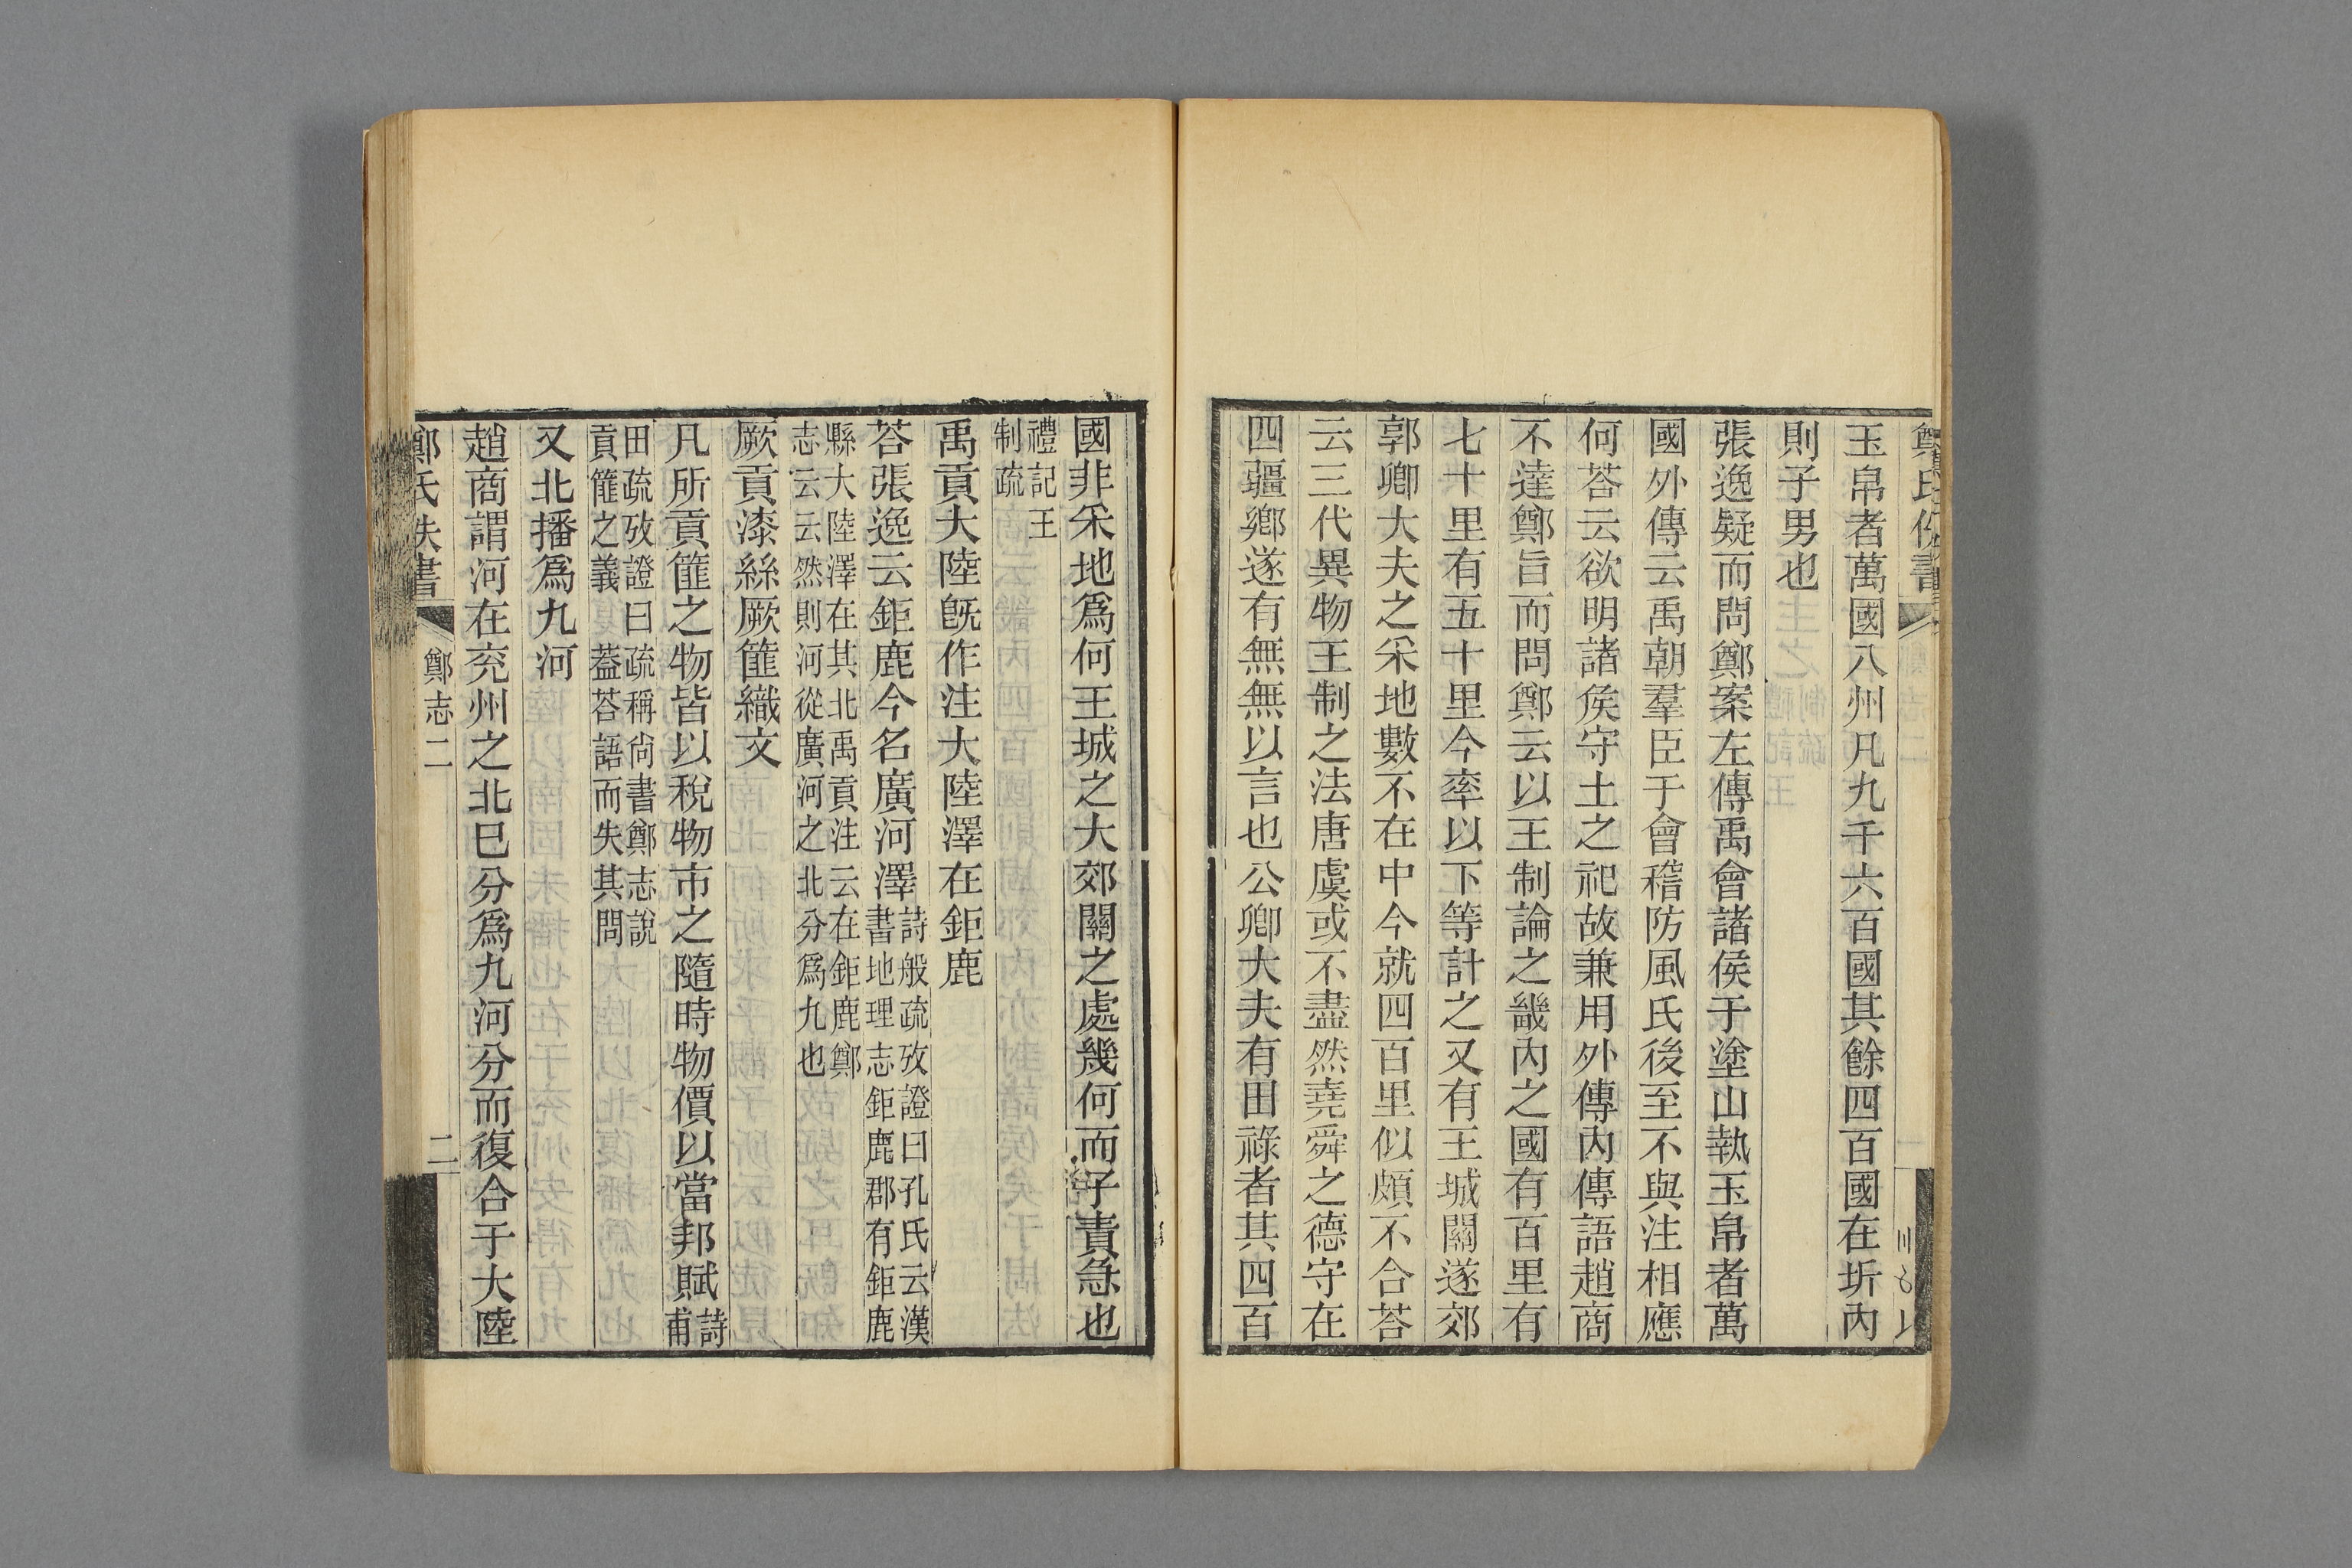 玉帛者萬國八州凡九千六百國其餘四百國在圻內
則子男也
張逸疑而問鄭案左傳禹會諸侯于塗山執玉帛者萬
國外傳云禹朝羣臣于會稽防風氏後至不與注相應
何荅云欲明諸矦守土之祀故兼用外傳內傳語趙商
不達鄭旨而問鄭云以王制論之畿內之國有百里有
七十里有五十里今率以下等計之又有王城關遂郊
郭卿大夫之采地數不在中今就四百里似頗不合荅
云三代異物王制之法唐虞或不盡然堯舜之德守在
四疆鄉遂有無無以言也公卿大夫有田祿者其四百
國非采地爲何王城之大郊關之處幾何而子責急也
禮記王
制疏
禹貢大陸旣作注大陸澤在鉅鹿
荅張逸云鉅鹿今名廣河澤
詩般疏攷證曰孔氏云漢
書地理志鉅鹿郡有鉅鹿
縣大陸澤在其北禹貢注云在鉅鹿鄭
志云云然則河從廣河之北分爲九也
厥貢漆絲厥篚織文
凡所貢篚之物皆以稅物市之隨時物價以當邦賦
詩
甫
田疏攷證曰疏稱尙書鄭志說
貢篚之義葢荅語而失其問
又北播爲九河
趙商謂河在兖州之北已分爲九河分而復合于大陸
鄭氏佚書
鄭志二
二